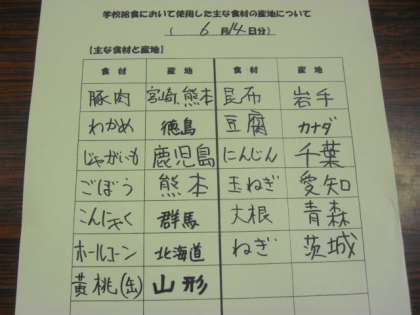 学校給食において使用した主な食材の産地について
( 6 月 14 日分)
【主な食材と産地】
食材 産地 食材 産地
豚肉 宮崎、熊本 昆布 岩手
わかめ 徳島 豆腐 カナダ
じゃがいも 鹿児島 にんじん 千葉
ごぼう 熊本 玉ねぎ 愛知
こんにゃく 群馬 大根 青森
ホールコーン 北海道 ねぎ 茨城
黄桃(缶) 山形